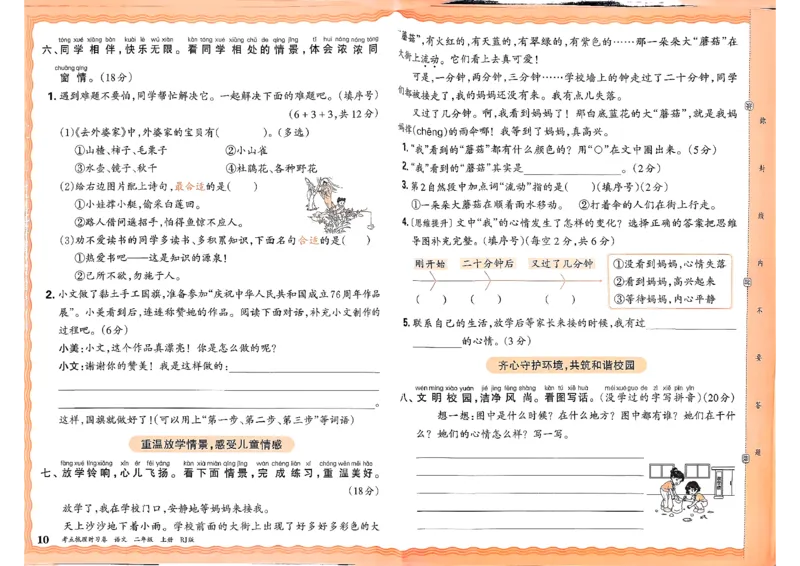 tóng xué xiāng bàn kuài lè wú xiàn kàn tóng xué xiāng chǔ de qíng jǐng tǐ huì nóng nóng tóng
六、同学相伴,快乐无限。看同学相处的情景,体会浓浓同
chuāng qíng
窗情。(18分)
1. 遇到难题不要怕,同学帮忙解决它。一起解决下面的难题吧。(填序号)
(6+3+3,共12分)
(1)《去外婆家》中,外婆家的宝贝有( )。(多选)
①山楂、柿子、毛栗子 ②小山雀
③水壶、镜子、秋千 ④杜鹃花、各种野花
(2)给右边图片配上诗句,最合适的是( )
①小娃撑小艇,偷采白莲回。
②路人借问遥招手,怕得鱼惊不应人。
(3)劝不爱读书的同学多读书、多积累知识,下面名句合适的是( )
①热爱书吧——这是知识的源泉!
②己所不欲,勿施于人。
2. 小文做了黏土手工国旗,准备参加“庆祝中华人民共和国成立76周年作品
展”。小美看到后,连连称赞她的作品。阅读下面对话,补充小文制作的
过程吧。(6分)
小美:小文,这个作品真漂亮!你是怎么做的呢?
小文:谢谢你的赞美!我是这样做的:
。
这样,国旗就做好了!(可以用上“第一步、第二步、第三步”等词语)
重温放学情景,感受儿童情感
fàng xué líng xiǎng xīn ér fēi yáng kàn xià miàn qíng jǐng wán chéng liàn xí chóng wēn měi hǎo
七、放学铃响,心儿飞扬。看下面情景,完成练习,重温美好。
(18分)
放学了,我在学校门口,安静地等妈妈来接我。
天上沙沙地下着小雨。学校前面的大街上出现了好多好多彩色的大
10 考点梳理时习卷 语文 二年级 上册 RJ版
“蘑菇”,有火红的,有天蓝的,有翠绿的,有紫色的……那一朵朵大“蘑菇”在
大街上流动。它们看上去真可爱!
可是,一分钟,两分钟,三分钟……学校墙上的钟走过了二十分钟,同学
们都被接走了,我的妈妈还没有来。我有点儿失落。
又过了几分钟。啊,我看到妈妈了!那白底蓝花的大“蘑菇”,就是我妈
妈撑(chēng)的雨伞嘞!我等到了妈妈,真高兴。
1. “我”看到的“蘑菇”都有什么颜色的?用“○”在文中圈出来。(5分)
2. “我”看到的“蘑菇”其实是 。(2分)
3. 第2自然段中加点词“流动”指的是( )(填序号)(2分)
①一朵朵大蘑菇在顺着雨水移动。 ②打着伞的人们在街上行走。
4. [思维提升]文中“我”的心情发生了怎样的变化?选择正确的答案把思维
导图补充完整。(填序号)(每空2分,共6分)
刚开始 二十分钟后 又过了几分钟
( ) ( ) ( )
①没看到妈妈,心情失落
②看到妈妈,高兴起来
③等待妈妈,内心平静
5. 联系自己的生活,放学后等家长来接的时候,我有过
的心情。(3分)
齐心守护环境,共筑和谐校园
wén míng xiào yuán jié jìng fēng shàng kàn tú xiě huà méi xué guo de zì xiě pīn yīn
八、文明校园,洁净风尚。看图写话。(没学过的字写拼音)(20分)
想一想:图中是什么时候?在什么地方?图中都有谁?她们在干什
么?她们的心情怎么样?写一写。
弥
封
线
内
不
要
答
题